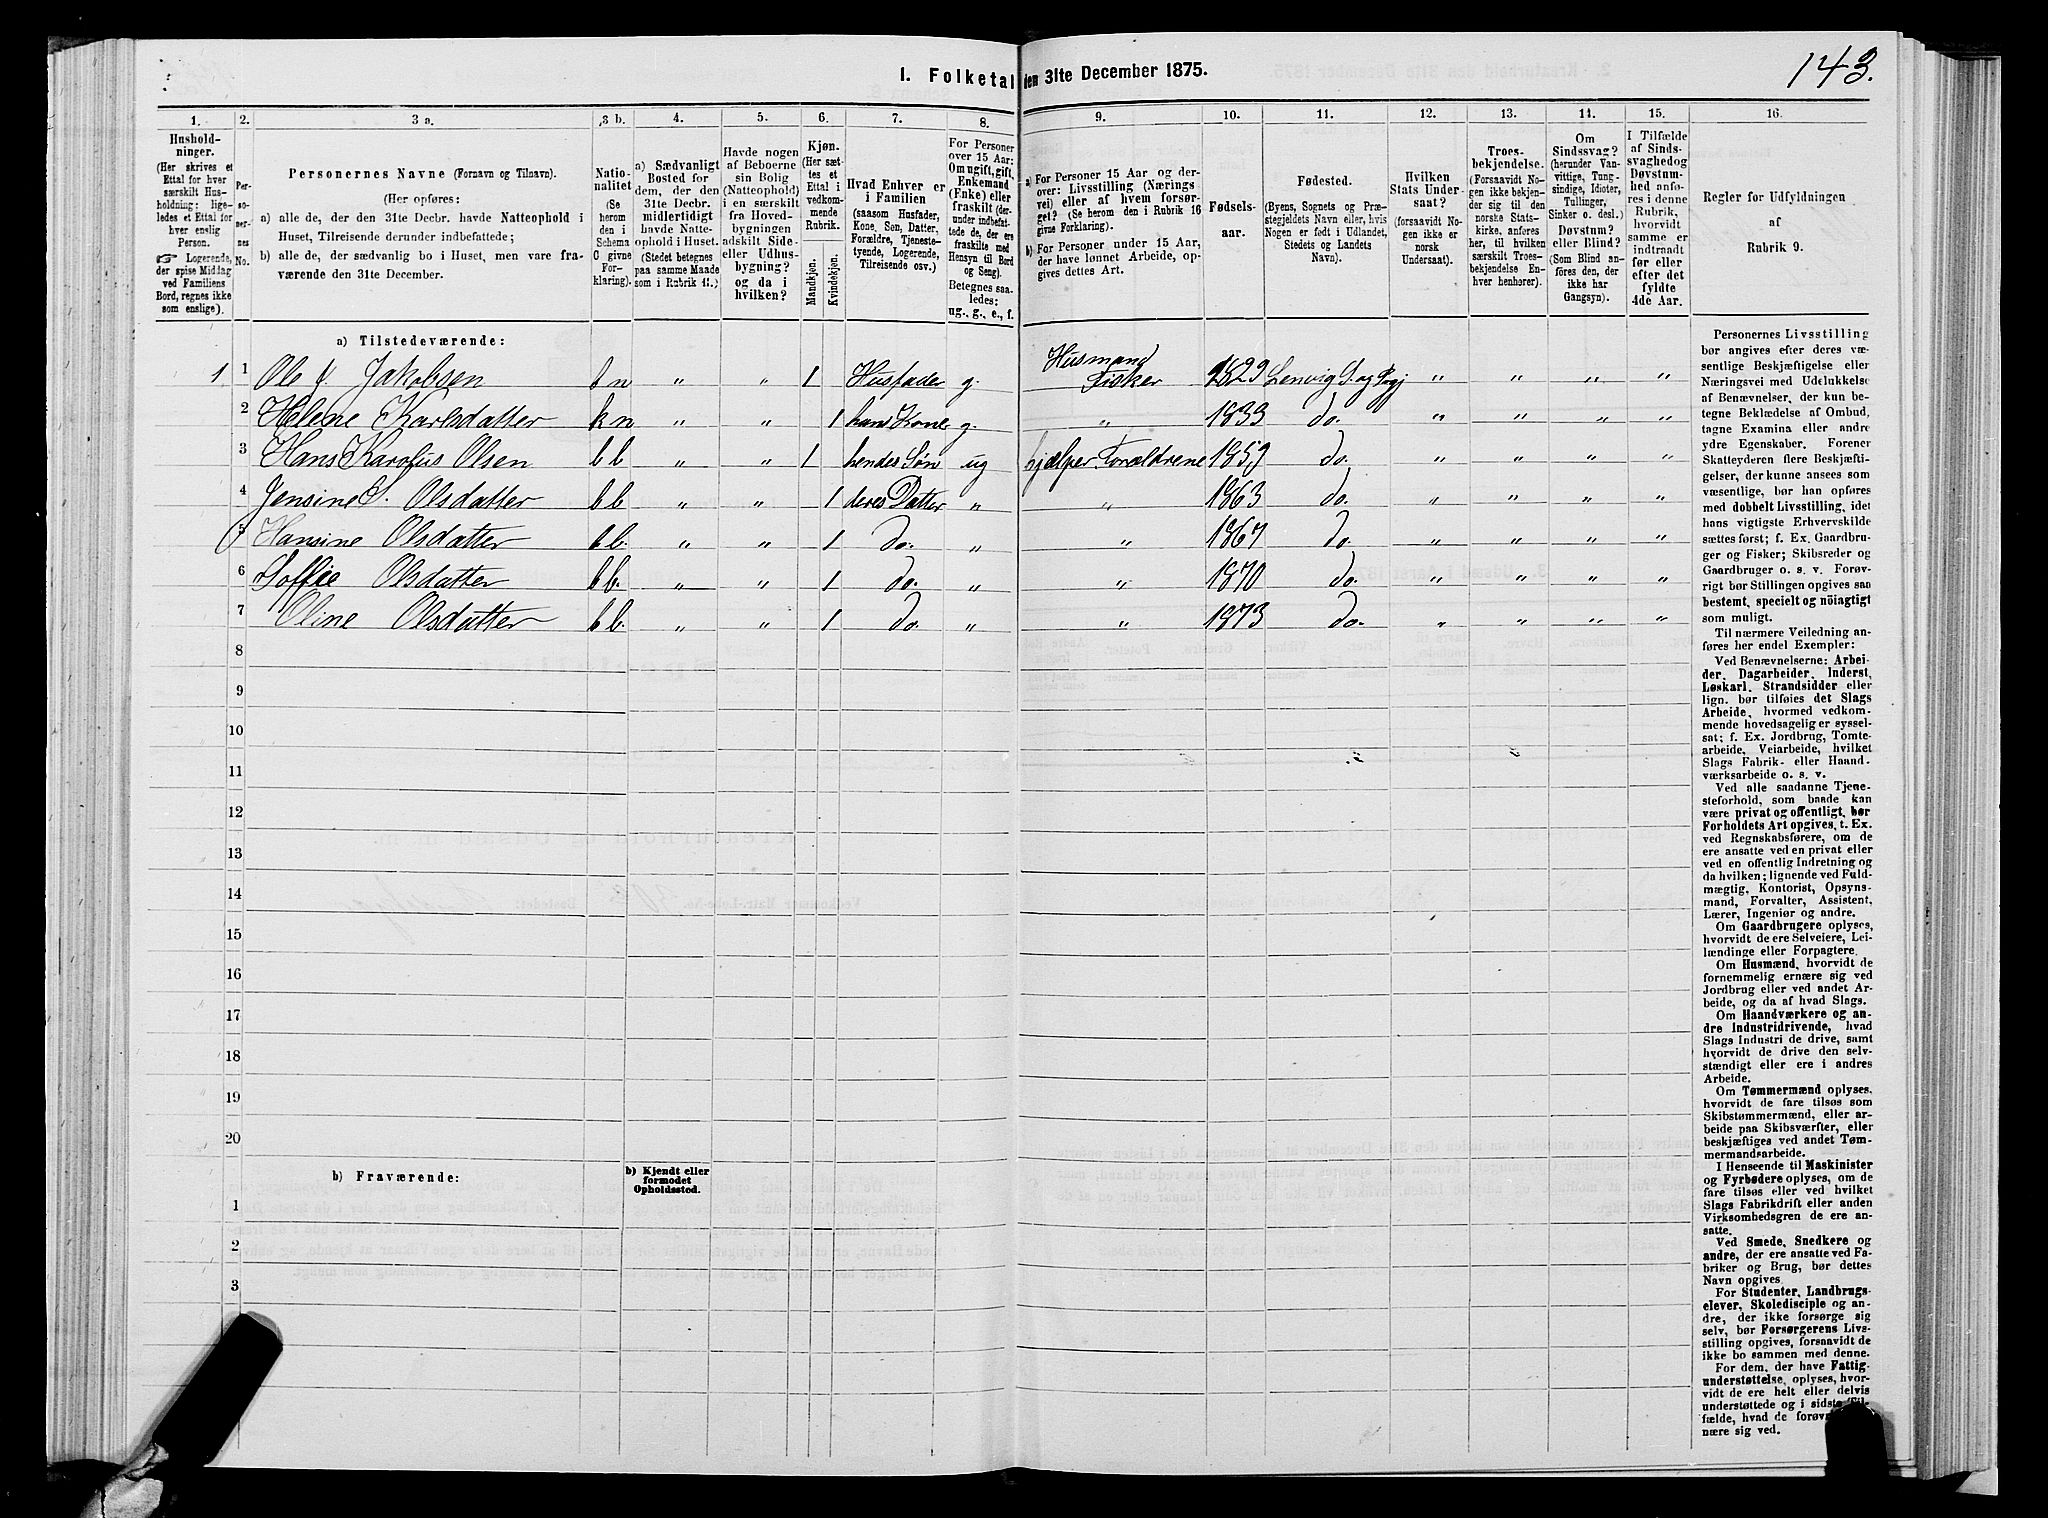 I. Folketal den 31te December 1875.
143.
1.
Husholdninger.
(Her skrives et
Ettal for hver
særskilt Husholdning;
ligeledes et Ettal for
hver enslig
Person.
☞ Logerende,
der spise Middag
ved Familiens
Bord, regnes ikke
som enslige).
2.
Personernes
No.
3 a.
Personernes Navne (Fornavn og Tilnavn).
(Her opføres:
a) alle de, der den 31te Decbr. havde Natteophold i
Huset, Tilreisende derunder indbefattede;
b) alle de, der sædvanlig bo i Huset, men vare fraværende
den 31te December.
3 b.
Nationalitet
(Se
herom
den i
Schema
C givne
Forklaring).
4.
a) Sædvanligt
Bosted for
dem, der den
31te Decbr.
midlertidigt
havde Natteophold
i Huset.
(Stedet betegnes
paa samme Maade
som i Rubrik 11.)
5.
Havde nogen
af Beboerne
sin Bolig
(Natteophold)
i en særskilt
fra Hovedbygningen
adskilt Side-
eller Udhusbygning?
og da i
hvilken?
6.
Kjøn.
(Her sættes
et
Ettal i
vedkommende
Rubrik.
Mandkjøn.
Kvindekjøn.
7.
Hvad Enhver er
i Familien
(saasom Husfader,
Kone, Søn, Datter,
Forældre, Tjenestetyende,
Logerende,
Tilreisende osv.)
8.
For Personer
over 15 Aar:
Om ugift, gift,
Enkemand
(Enke) eller
fraskilt (derunder
indbefattede
de, der ere
fraskilte med
Hensyn til Bord
og Seng).
Betegnes saaledes:
ug., g., e., f.
9.
a) For Personer 15 Aar og derover:
Livsstilling (Næringsvei)
eller af hvem forsørget?
(Se herom den i Rubrik 16
givne Forklaring).
b) For Personer under 15 Aar,
der have lønnet Arbeide, opgives
dettes Art.
10.
Fødselsaar.
11.
Fødested.
(Byens, Sognets og Præstegjeldets
Navn eller, hvis
Nogen er født i Udlandet,
Stedets og Landets
Navn).
12.
Hvilken
Stats Undersaat?
(forsaavidt Nogen
ikke er
norsk
Undersaat).
13.
Troesbekjendelse.
(Forsaavidt Nogen
ikke bekjender
sig til den
norske Statskirke,
anføres
her, til hvilken
særskilt Troesbekjendelse
Enhver
henhører).
14.
Om
Sindssvag?
(herunder Vanvittige,
Tungsindige,
Idioter,
Tullinger,
Sinker o. desl.)
Døvstum?
eller Blind?
(Som Blind anføres
den, der
ikke har
Gangsyn).
15.
I Tilfælde
af Sindssvaghed og
Døvstumhed
anføres
i denne
Rubrik,
hvorvidt
samme er
indtraadt
før eller
efter det
fyldte
4de Aar.
16.
Regler for Udfyldningen
af
Rubrik 9.
a) Tilstedeværende:
Husmand
1 1 Ole J. Jakobsen b n „ „ 1 Husfader g. Fisker 1829 Lenvig S. og Prgj „ „ „ „
2 Helene Karlsdatter k n „ „ 1 hans Kone g. „ 1833 do. „ „ „ „
3 Hans Karolus Olsen b b „ „ 1 hendes Søn ug hjælper Forældrene 1859 do. „ „ „ „
4 Jensine S. Olsdatter b b „ „ 1 deres Datter „ „ 1863 do. „ „ „ „
5 Hansine Olsdatter b b. „ „ 1 do. „ „ 1867 do „ „ „ „
6 Soffie Olsdatter b b. „ „ 1 do. „ „ 1870 do. „ „ „ „
7 Oline Olsdatter b b. „ „ 1 do. „ „ 1873 do. „ „ „ „
8
9
10
11
12
13
14
15
16
17
18
19
20
b) Fraværende:
b) Kjendt eller
formodet
Opholdssted.
1
2
3
Personernes Livsstilling
bør angives efter deres væsentlige
Beskjæftigelse eller
Næringsvei med Udelukkelse
af Benævnelser, der kun betegne
Beklædelse af Ombud,
tagne Examina eller andre
ydre Egenskaber. Forener
Skatteyderen flere Beskjæftigelser,
der kunne ansees som
væsentlige, bør han opføres
med dobbelt Livsstilling, idet
hans vigtigste Erhvervskilde
sættes først; f. Ex. Gaardbruger
og Fisker; Skibsreder og
Gaardbruger o. s. v. Forøvrigt
bør Stillingen opgives saa
bestemt, specielt og nöiagtigt
som muligt.
Til nærmere Veiledning anføres
her endel Exempler:
Ved Benævnelserne: Arbeider,
Dagarbeider, Inderst,
Løskarl, Strandsidder eller
lign. bør tilføies det Slags
Arbeide, hvormed vedkommende
hovedsagelig er sysselsat;
f. Ex. Jordbrug, Tomtearbeide,
Veiarbeide, hvilket
Slags Fabrik- eller Haandværksarbeide
o. s. v.
Ved alle saadanne Tjenesteforhold,
som baade kan
være privat og offentligt, bør
Forholdets Art opgives, t. Ex.
ved Regnskabsførere, om de
ere ansatte ved en privat eller
ved en offentlig Indretning og
da hvilken; lignende ved Fuldmægtig,
Kontorist, Opsynsmand,
Forvalter, Assistent,
Lærer, Ingeniør og andre.
Om Gaardbrugere oplyses,
hvorvidt de ere Selveiere, Leilændinge
eller Forpagtere.
Om Husmænd, hvorvidt de
fornemmelig ernære sig ved
Jordbrug eller ved andet Arbeide,
og da af hvad Slags.
Om Haandværkere og andre
Industridrivende, hvad
Slags Industri de drive, samt
hvorvidt de drive den selvstændigt
eller ere i andres
Arbeide.
Om Tømmermænd oplyses,
hvorvidt de fare tilsøs som
Skibstømmermænd, eller arbeide
paa Skibsværfter, eller
beskjæftiges ved andet Tømmermandsarbeide.
I Henseende til Maskinister
og Fyrbødere oplyses, om de
fare tilsøs eller ved hvilket
Slags Fabrikdrift eller anden
Virksomhedsgren de ere ansatte.
Ved Smede, Snedkere og
andre, der ere ansatte ved Fabriker
og Brug, bør dettes
Navn opgives
For Studenter, Landbrugselever,
Skoledisciple og andre,
der ikke forsørge sig
selv, bør Forsørgerens Livsstilling
opgives, forsaavidt de
ikke bo sammen med denne.
For dem, der have Fattigunderstøttelse,
oplyses, hvorvidt
de ere helt eller delvis
understøttede og i sidste Tilfælde,
hvad de forøvrigt
nære sig ved.